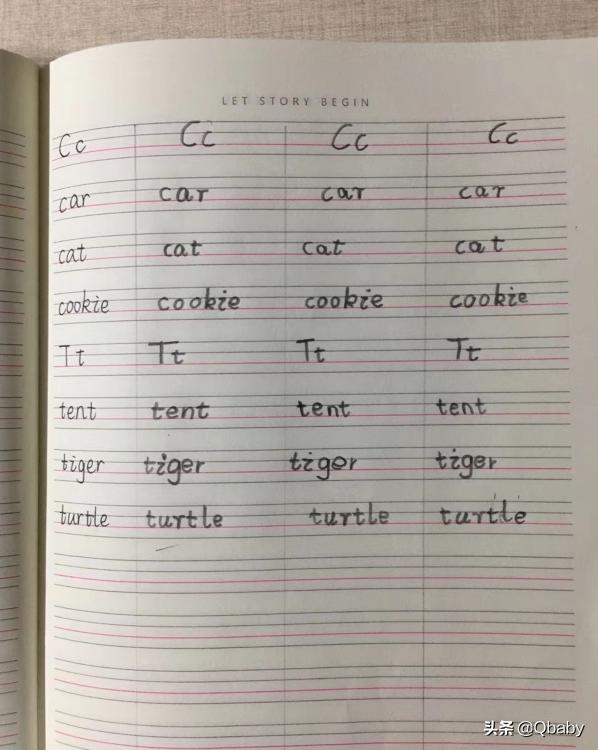 LET STORY BEGIN
Cc Cc Cc Cc
car car car car
cat cat cat cat
cookie cookie cookie cookie
Tt Tt Tt Tt
tent tent tent tent
tiger tiger tiger tiger
turtle turtle turtle turtle
头条 @Qbaby